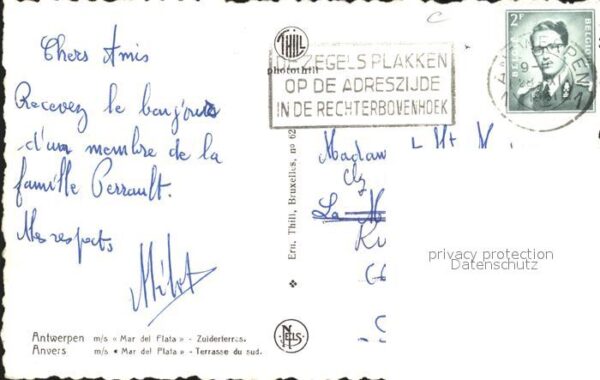 Chers Amis
Recevez le bonjour
d'un membre de la
famille Perrault.
Mes respects
Antwerpen m/s « Mar del Plata » - Zuiderterras.
Anvers m/s « Mar del Plata » - Terrasse du sud.
THILL
photothill
ZEGELS PLAKKEN
OP DE ADRESZIJDE
IN DE RECHTERBOVENHOEK
Ern. Thill, Bruxelles, no 62
NELS
2F
ANTWERPEN
1 1
Madam
La
privacy protection
Datenschutz